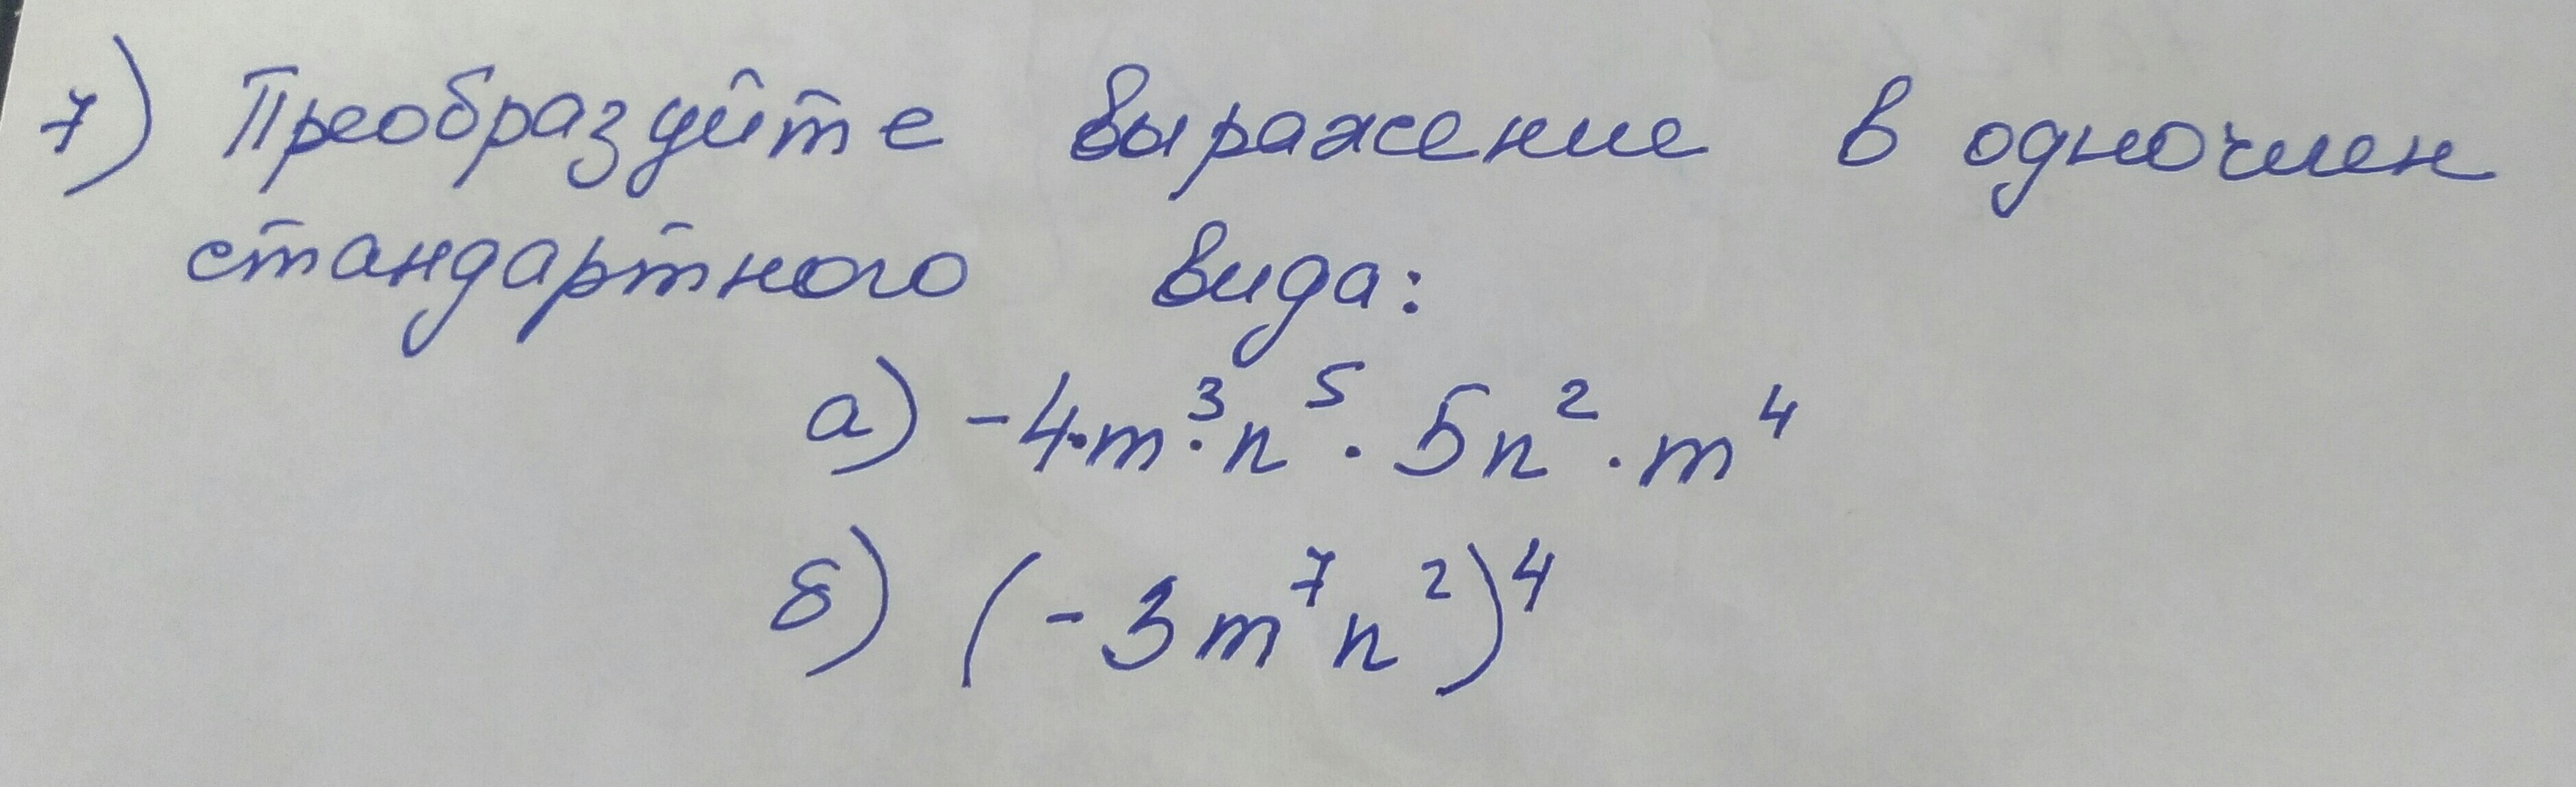 7) Преобразуйте выражение в одночлен
стандартного вида:
а) -4·m³·n⁵·5n²·m⁴
б) (-3m⁷n²)⁴